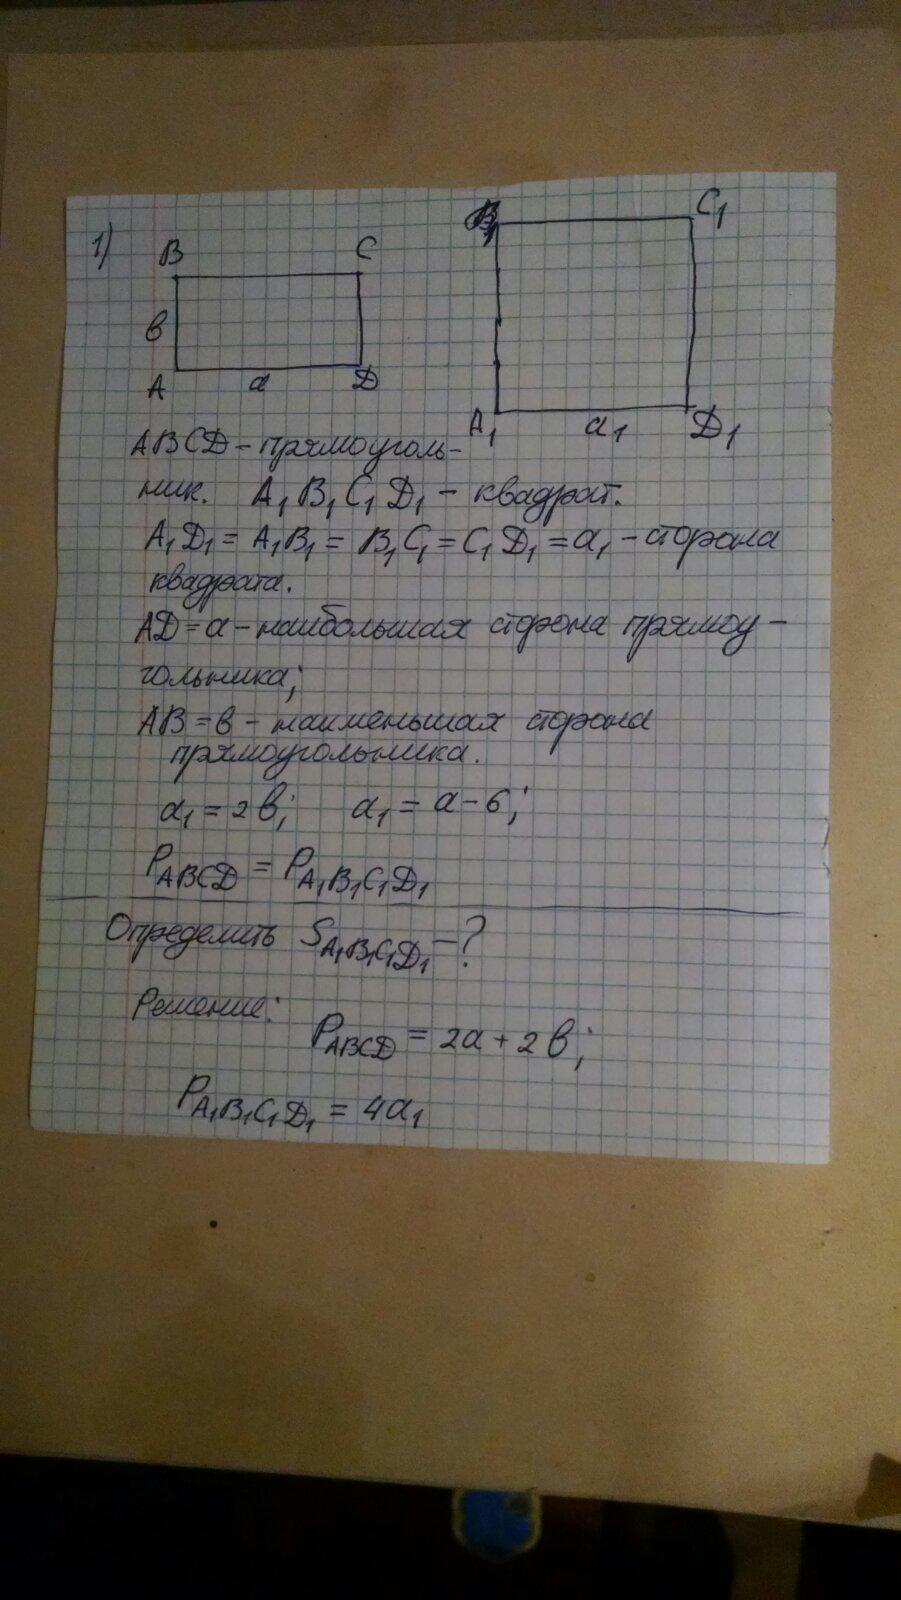 1)
B C
в
A а D
B₁ C₁
A₁ а₁ D₁
ABCD – прямоуголь-
ник. A₁B₁C₁D₁ – квадрат.
A₁D₁ = A₁B₁ = B₁C₁ = C₁D₁ = а₁ – сторона
квадрата.
AD = а – наибольшая сторона прямоу-
гольника;
AB = в – наименьшая сторона
прямоугольника.
а₁ = 2в; а₁ = а – 6;
P_ABCD = P_A₁B₁C₁D₁
Определить S_A₁B₁C₁D₁ – ?
Решение:
P_ABCD = 2а + 2в;
P_A₁B₁C₁D₁ = 4а₁